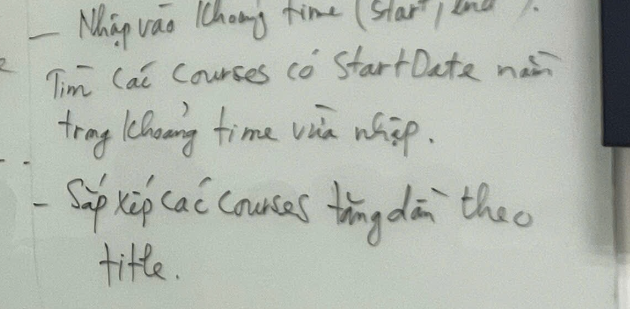 - Nhập vào khoảng time (start, end).
Tìm các courses có startDate nằm
trong khoảng time vừa nhập.
- Sắp xếp các courses tăng dần theo
title.